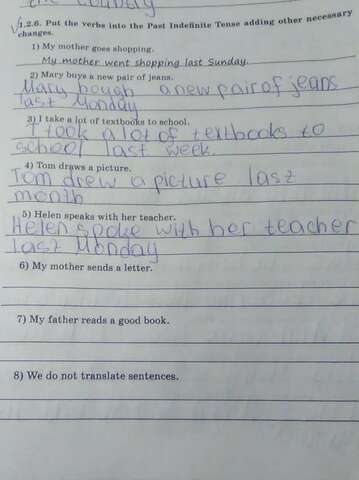 the country
1.2.6. Put the verbs into the Past Indefinite Tense adding other necessary
changes.
1) My mother goes shopping.
My mother went shopping last Sunday.
2) Mary buys a new pair of jeans.
Mary bough a new pair of jeans
last Monday
3) I take a lot of textbooks to school.
I took a lot of textbooks to
school last week.
4) Tom draws a picture.
Tom drew a picture last
month
5) Helen speaks with her teacher.
Helen spoke with her teacher
last Monday
6) My mother sends a letter.
7) My father reads a good book.
8) We do not translate sentences.